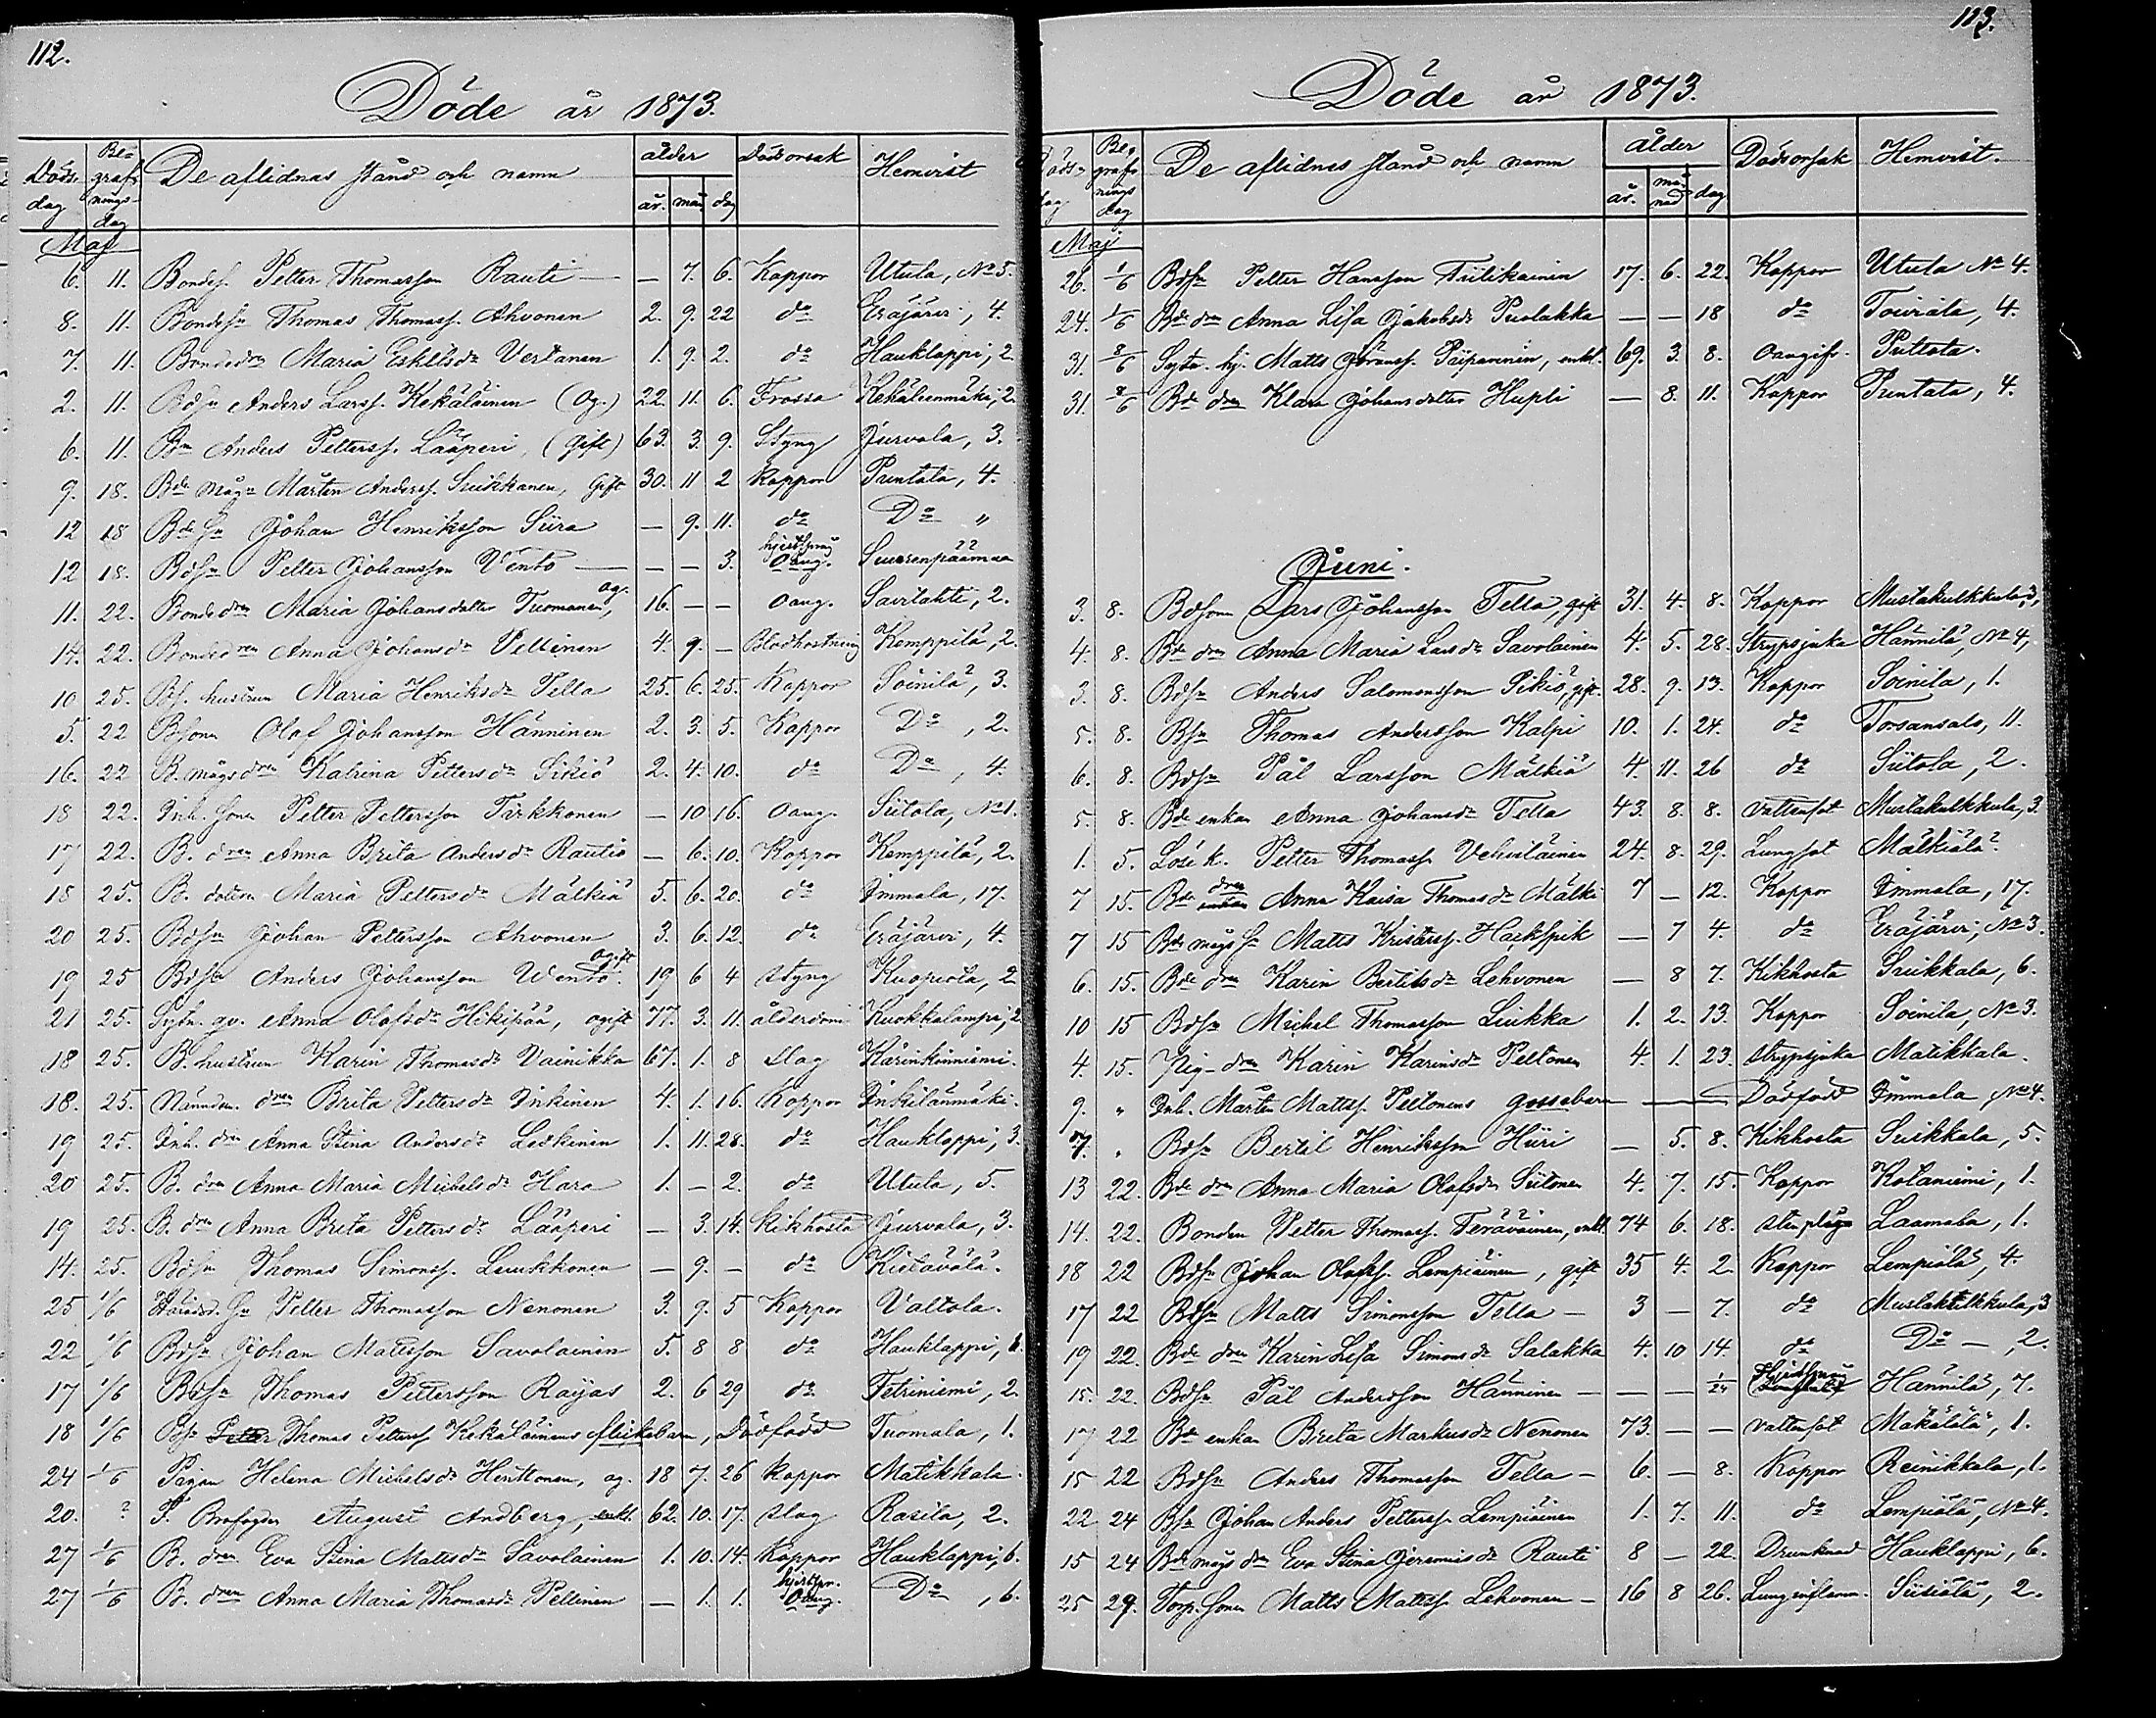 112.
Döde år 1873.
Döds dag Begrafnings-dag De aflidnas stånd och namn ålder år. mån. dag Dödsorsak Hemvist
Maj
6. 11. Bondes. Petter Thomasson Rauti — — 7. 6. Koppor Utula, No 5.
8. 11. Bondesn Thomas Thomass. Ahvonen 2. 9. 22 do Eräjärvi, 4.
7. 11. Bondedrn Maria Eskelsdr Vertanen 1. 9. 2. do Hauklappi, 2
2. 11. Bdsn Anders Larss. Kekäläinen (Og.) 22. 11. 6. Frossa Kekäleenmäki, 2.
6. 11. Bn Anders Petterss. Lääperi, (Gift) 63. 3. 9. Styng Jurvala, 3.
9. 18. Bde mågn Mårten Anderss. Suikkanen, Gift 30. 11 2 Koppor Puntala, 4.
12 18 Bde sn Johan Henriksson Siira — 9. 11. do Do "
12 18. Bdsn Petter Johansson Vento — — — 3. hjertspräng Oang. Suurenpäämaa
11. 22. Bondedrn Maria Johansdotter Tuomanen, og. 16. — — Oang. Savilahti, 2.
14. 22. Bondedrn Anna Johansdr Pellinen 4. 9. — Blodhostning Kemppilä, 2.
10 25. Bs. hustrun Maria Henriksdr Tella 25. 6. 25. Koppor Soinila, 3.
5. 22 Bsonen Olof Johansson Hänninen 2. 3. 5. Koppor Do , 2.
16. 22 B. mågsdrn Katrina Pettersdr Sikiö 2. 4. 10. do Do , 4.
18 22. Inh. sonen Petter Pettersson Tirkkonen — 10 16. Oang. Siitola, No 1.
17 22. B. drn Anna Brita Andersdr Rautio — 6. 10. Koppor Kemppilä, 2.
18 25. B. dottern Maria Pettersdr Mälkiä 5. 6. 20. do Immala, 17.
20 25. Bdsn Johan Pettersson Ahvonen 3. 6. 12. do Eräjärvi, 4.
19 25 Bdsn Anders Johansson Wento ogift 19 6 4 Styng Kuopiola, 2
21 25. Sytn. gv. Anna Olofsdr Hikipää, ogift 77. 3. 11. ålderdom Kuokkalampi, 2
18 25. B. hustrun Karin Thomasdr Vainikka 67. 1. 8 Slag Kärinkinniemi.
18. 25. Nämndem. drn Brita Pettersdr Inkinen 4. 1. 16. Koppor Inkilänmäki.
19 25. Inh. drn Anna Stina Andersdr Leskinen 1. 11. 28. do Hauklappi, 3.
20 25. B. drn Anna Maria Michelsdr Hara 1. — 2. do Utula, 5.
19 25. B. drn Anna Brita Pettersdr Lääperi — 3. 14. Kikhosta Jurvala, 3.
14. 25. Bdsn Thomas Simonss. Luukkonen — 9. — do Kietäväla.
25 1/6 sn Petter Thomasson Nenonen 3. 9. 5 Koppor Valtola.
22 1/6 Bdsn Johan Mattsson Savolainen 5. 8 8 do Hauklappi, 1.
17 1/6 Bdsn Thomas Pettersson Rayas 2. 6 29 do Tetriniemi, 2.
18 1/6 Bs. Petter Thomas Petterss Kekäläinens flickebarn, Dödfödd Tuomala, 1.
24 1/6 Pigan Helena Michelsdr Henttonen, og. 18 7. 26 koppor Matikkala
20. ? F. Brofogden August Andberg, enkl. 62. 10. 17. Slag Rasila, 2.
27 1/6 B. drn Eva Stina Mattsdr Savolainen 1. 10. 14. Koppor Hauklappi, 6.
27 1/6 B. drn Anna Maria Thomasdr Pellinen — 1. 1. hjertspr. Oang. Do , 6.
113.
Döde år 1873.
Döds-dag Begrafnings dag De aflidnas stånd och namn ålder år. månad dag Dödsorsak Hemvist.
Maj
26. 1/6 Bdsn Petter Hansson Tiilikainen 17. 6. 22. Koppor Utula No 4.
24. 1/6 Bde drn Anna Lisa Jakobsdr Puolakka — — 18 do Touriala, 4.
31. 8/6 Sytn. hj. Matts Göranss. Päiparinen, enkl. 69. 3. 8. Oangifv. Pultola.
31. 8/6 Bde drn Klara Johansdotter Hupli — 8. 11. Koppor Puntala, 4.
Juni.
3. 8. Bdsonen Lars Johansson Tella, gift 31. 4. 8. Koppor Mustakulkkula, 3,
4. 8. Bde drn Anna Maria Larsdr Savolainen 4. 5. 28. Strypsjuka Hannilä, No 4,
3. 8. Bdsn Anders Salomonsson Sikiö, gift. 28. 9. 13. Koppor Soinila, 1.
5. 8. Bsn Thomas Andersson Kalpi 10. 1. 24. do Torsansalo, 11.
6. 8. Bdsn Pål Larsson Mälkiä 4. 11. 26 do Siitola, 2.
5. 8. Bde enkan Anna Johansdr Tella 43. 8. 8. Vattusot Mustakulkkula, 3.
1. 5. Lösk. Petter Thomass. Vehviläinen 24. 8. 29. Lungsot Mälkiälä.
7 15. Bde drn Anna Kaisa Thomasdr Mälki 7 — 12. Koppor Immala, 17.
7 15 Bde mågs sn Matts Kristerss. Harkspik — 7 4. do Eräjärvi, No 3.
6. 15. Bde drn Karin Bertilsdr Lehvonen — 8 7. Kikhosta Suikkala, 6.
10 15 Bdsn Michel Thomasson Liukka 1. 2. 13. Koppor Soinila, No 3.
4. 15. Pig-drn Karin Karinsdr Peltonen 4. 1. 23. Strypsjuka Matikkala.
9. " Inh. Mårten Mattss. Peltonens gossebarn — Dödfödd Immala No 4.
7. " Bdsn Bertil Henriksson Hiiri — 5. 8. Kikhosta Suikkala, 5.
13 22. Bde drn Anna Maria Olofsdr Siitonen 4. 7. 15. Koppor Kotaniemi, 1.
14. 22. Bonden Petter Thomass. Teräväinen, enkl. 74 6. 18. Stenplåga Laamala, 1.
18 22 Bdsn Johan Olofss. Lempiäinen, gift 35 4. 2. Koppor Lempiälä, 4.
17 22 Bdsn Matts Simonsson Tella — 3 — 7. do Mustakulkkula, 3
19 22. Bde drn Karin Lisa Simonsdr Salakka 4. 10 14. do Do — , 2.
15. 22. Bdsn Pål Andersson Hänninen — — — 1/24 Hjertspräng Hannilä, 7.
17 22 Bde enkan Brita Markusdr Nenonen 73. — — Vattusot Mäkälälä, 1.
15 22 Bdsn Anders Thomasson Tella — 6. — 8. Koppor Reinikkala, 1.
22 24 Bsn Johan Anders Petterss. Lempiäinen 1. 7. 11. do Lempiälä, No 4.
15 24 Bde mågs drn Eva Stina Jeremiisdr Rauti 8 — 22. Drunknad Hauklappi, 6.
25 29. Torp. sonen Matts Mattss. Lehvonen — 16 8 26. Lunginflamm. Siisiälä, 2.